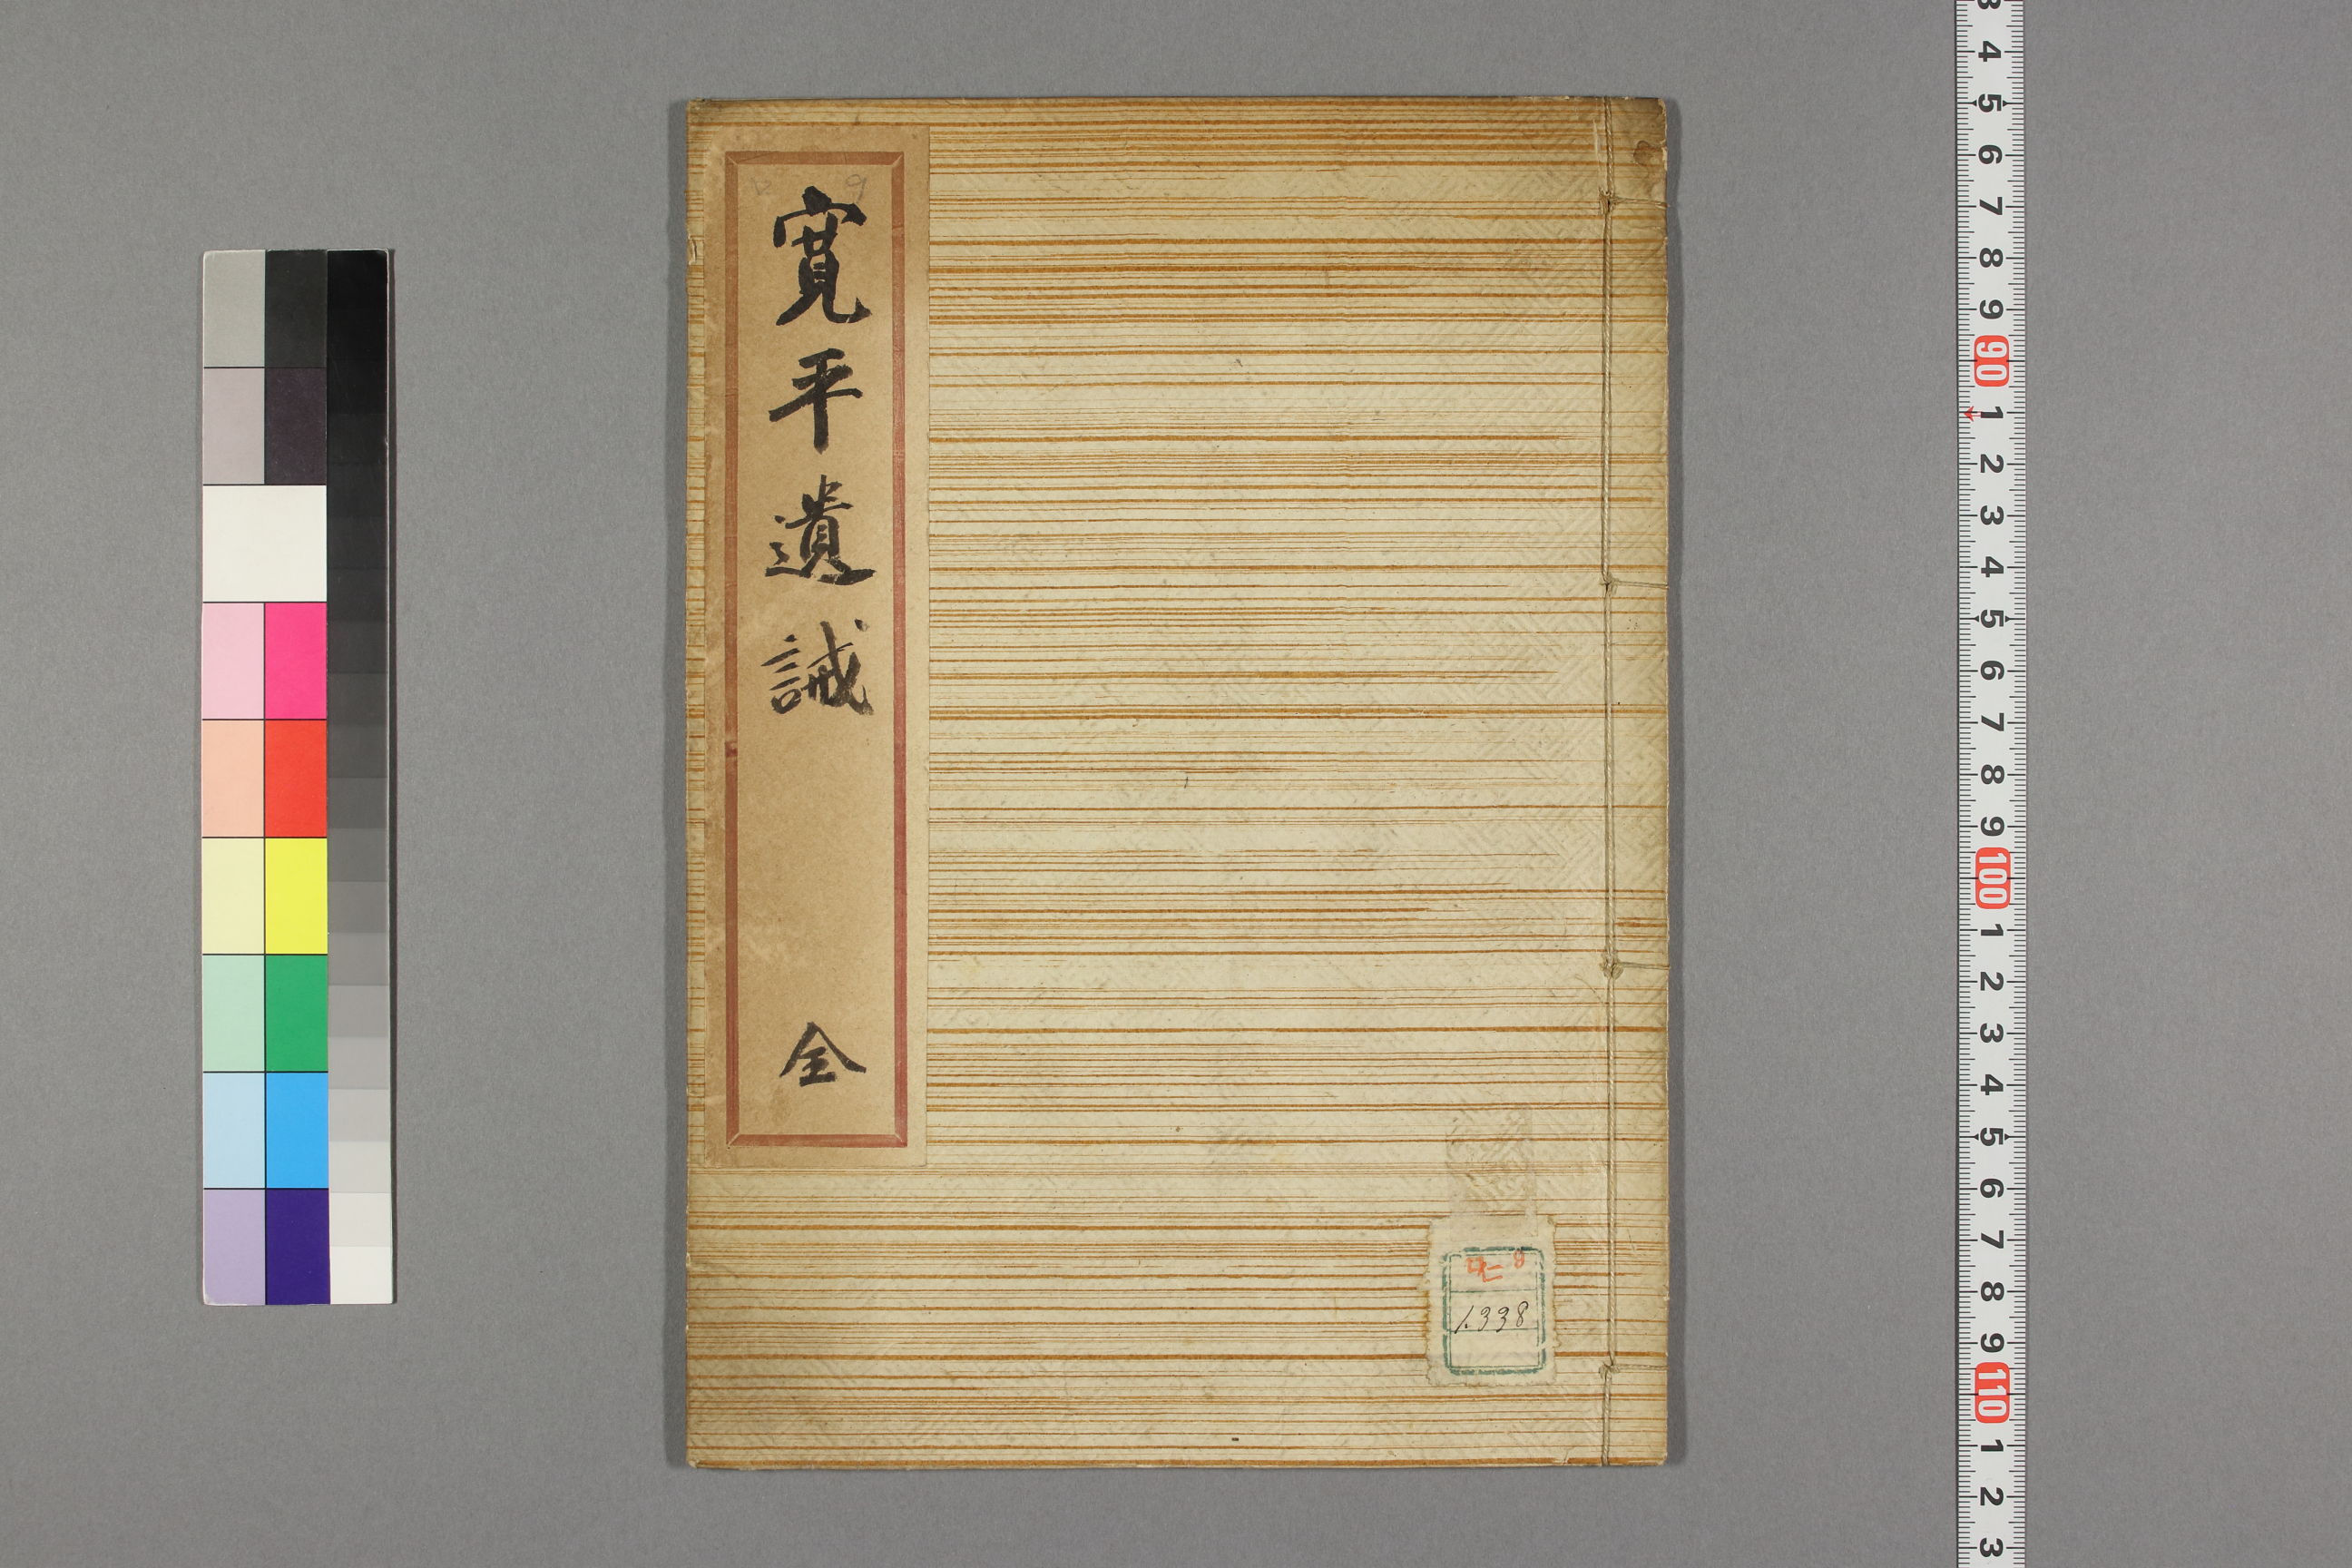 寛平遺誡
全
1.338
3
4
5
6
7
8
9
90
1
2
3
4
5
6
7
8
9
100
1
2
3
4
5
6
7
8
9
110
1
2
3